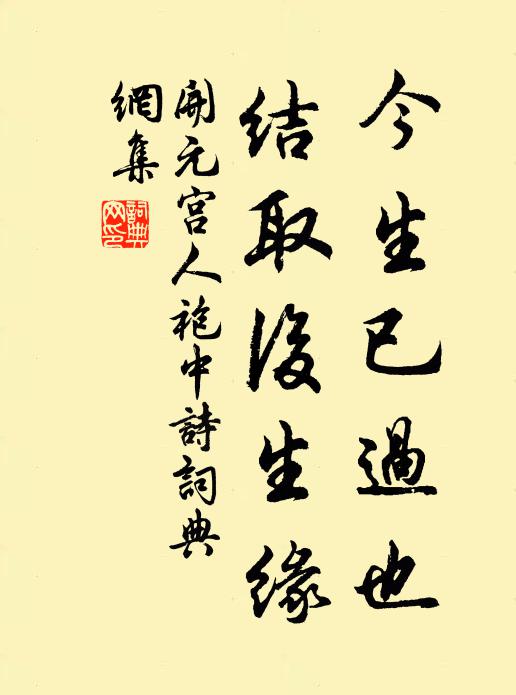 今生已過也
結取後生緣
開元宮人袍中詩詞典
網集
詞典
網印